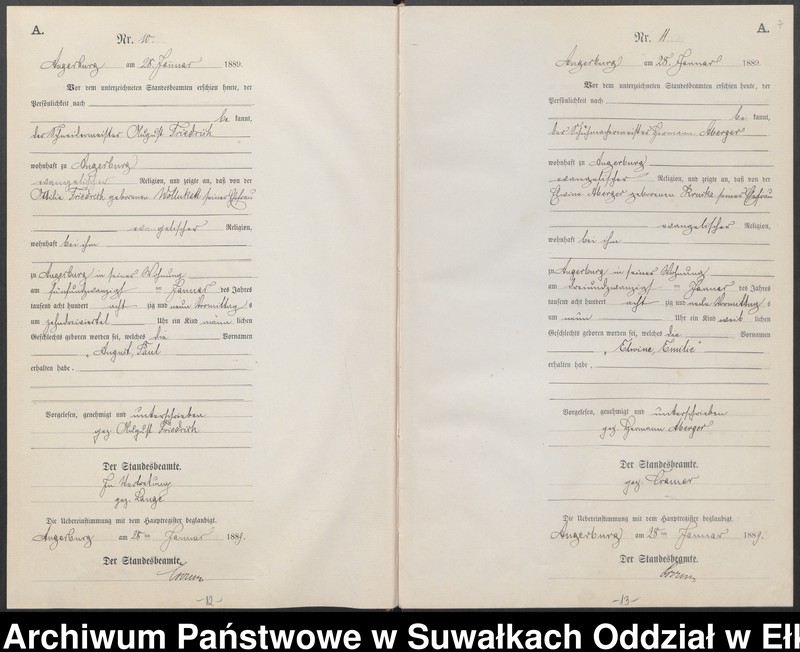 A.
Nr. 10
Angerburg am 28. Januar 1889.
Vor dem unterzeichneten Standesbeamten erschien heute, der
Persönlichkeit nach
be kannt,
der Schneidermeister August Friedrich
wohnhaft zu Angerburg
evangelischer Religion, und zeigte an, daß von der
Ottilie Friedrich geborenen seiner Ehefrau
evangelischer Religion,
wohnhaft bei ihm
zu Angerburg in seiner Wohnung
am fünfundzwanzigsten Januar des Jahres
tausend acht hundert acht zig und neun Vormittag s
um zehndreiviertel Uhr ein Kind männ lichen
Geschlechts geboren worden sei, welches die Vornamen
„August, Paul
erhalten habe.
Vorgelesen, genehmigt und unterschrieben
gez. August Friedrich
Der Standesbeamte.
In Vertretung
gez. Lange
Die Uebereinstimmung mit dem Hauptregister beglaubigt.
Angerburg am 28ten Januar 1889.
Der Standesbeamte.
-12-
A.
7
Nr. 11
Angerburg am 28. Januar 1889.
Vor dem unterzeichneten Standesbeamten erschien heute, der
Persönlichkeit nach
be kannt,
der Schuhmachermeister Hermann Aberger
wohnhaft zu Angerburg
evangelischer Religion, und zeigte an, daß von der
Elwine Aberger geborenen seiner Ehefrau
evangelischer Religion,
wohnhaft bei ihm
zu Angerburg in seiner Wohnung
am dreiundzwanzigsten Januar des Jahres
tausend acht hundert acht zig und neun Vormittag s
um neun Uhr ein Kind weib lichen
Geschlechts geboren worden sei, welches die Vornamen
„Elwine, Emilie“
erhalten habe.
Vorgelesen, genehmigt und unterschrieben
gez. Hermann Aberger
Der Standesbeamte.
gez. Cramer
Die Uebereinstimmung mit dem Hauptregister beglaubigt.
Angerburg am 28ten Januar 1889.
Der Standesbeamte.
-13-
Archiwum Państwowe w Suwałkach Oddział w Ełk